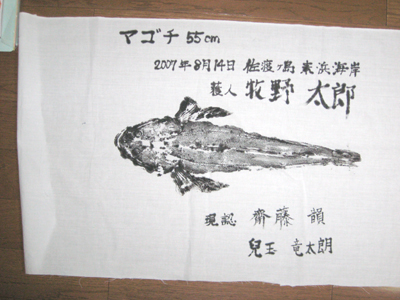 マゴチ 55cm
2007年8月14日 佐渡ヶ島 東浜海岸
獲人 牧野 太郎
現認 齋藤 韻
兒玉 竜太朗